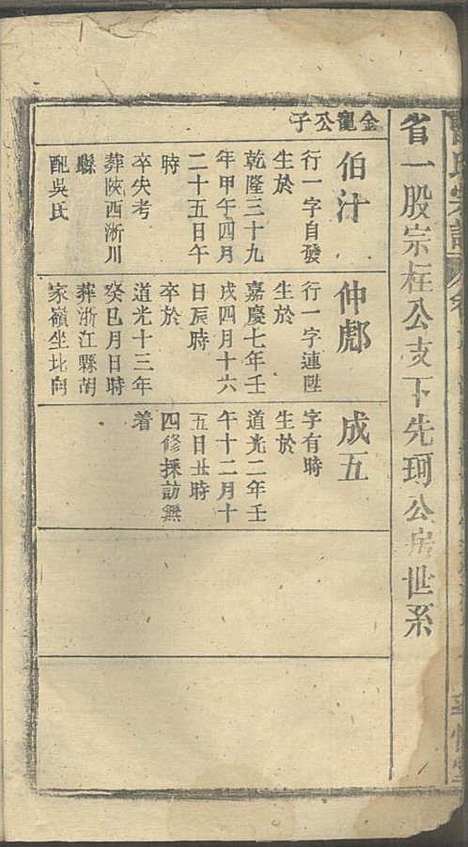 省一股宗柱公支下先珂公房世系
金寵公子
伯汁
行一字自發
生於
乾隆三十九
年甲午四月
二十五日午
時
卒失考
葬陝西淅川
縣
配吳氏
仲郙
行一字連陞
生於
嘉慶七年壬
戌四月十六
日辰時
卒於
道光十三年
癸巳月日時
葬浙江縣胡
家嶺坐北向
成五
字有時
生於
道光二年壬
午十二月十
五日丑時
四修採訪無
着
氏宗譜